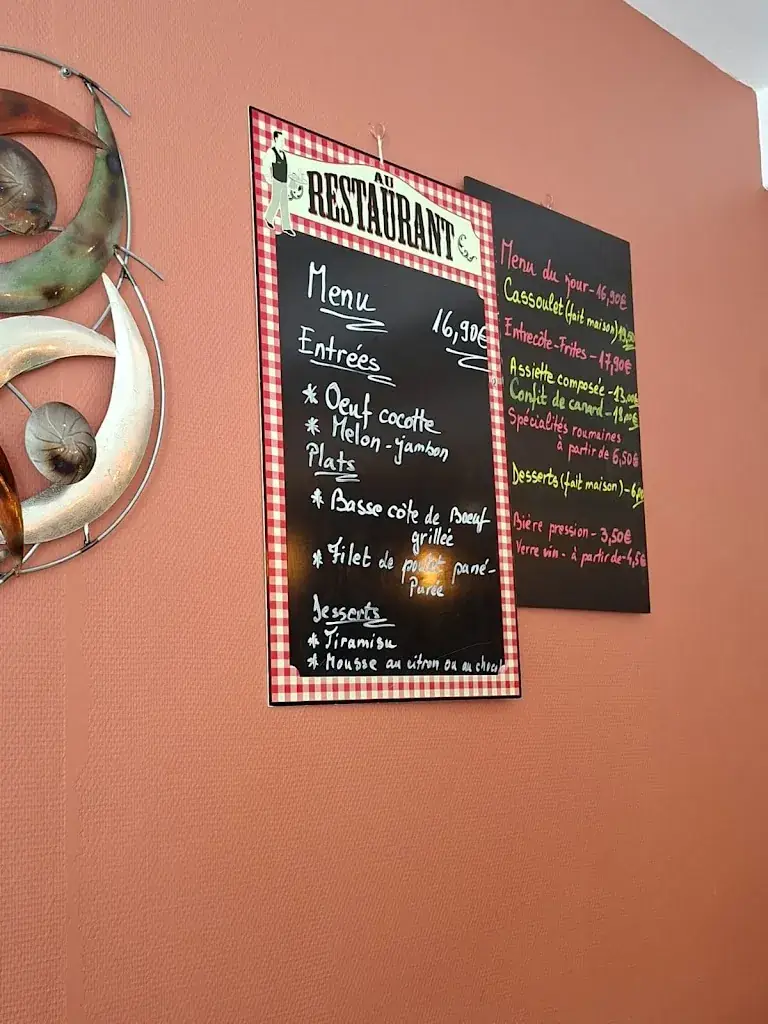 AU
RESTAURANT
Menu
16,90€
Entrées
* Oeuf cocotte
* Melon-jambon
Plats
* Basse côte de Boeuf
grillée
* Filet de poulet pané-
Purée
Desserts
* Tiramisu
* Mousse au citron ou au chocol
Menu du jour-16,90€
Cassoulet (fait maison)
Entrecôte-Frites-17,90€
Assiette composée-13,00€
Confit de canard-18,00€
Spécialités roumaines
à partir de 6,50€
Desserts (fait maison)-6,00
Bière pression-3,50€
Verre vin-à partir de-4,5€